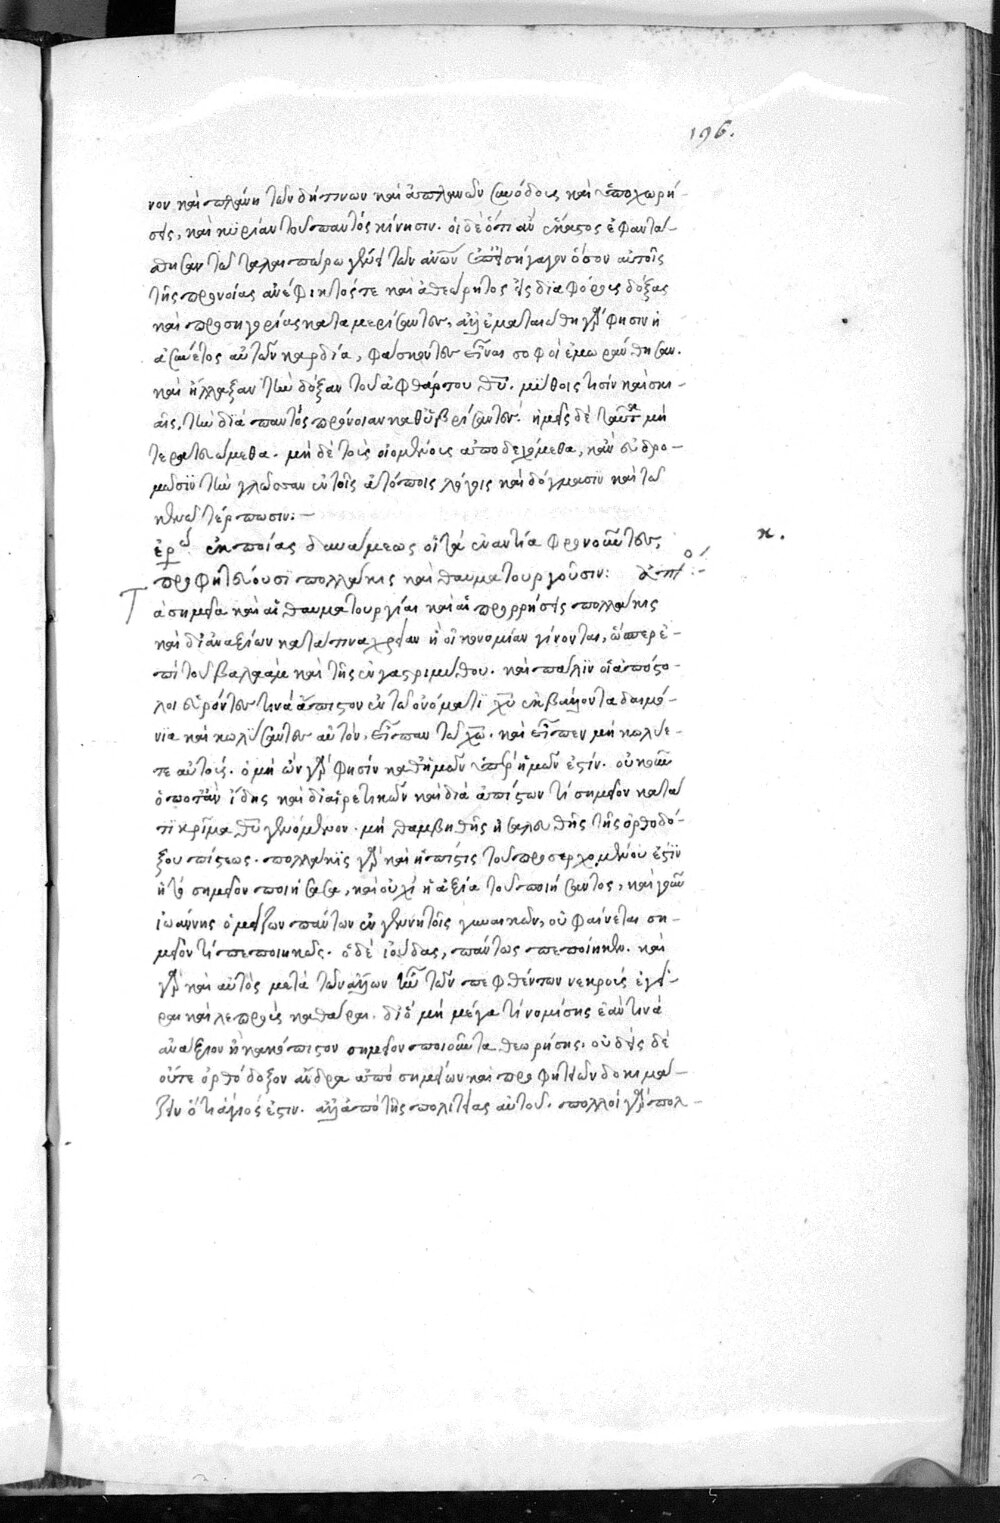 196.
νον καὶ πλάνη τῶν δήπνων καὶ ἀπλανῶν συνόδοις καὶ ὑποχωρή-
σεις, καὶ κυρίαν τοῦ παντὸς κίνησιν. οἱ δὲ ὅτι ἂν ἕκαστος ἐφαντά-
σθησαν τῶ ταλαιπώρω γένει τῶν ἀνων ἐπεισήγαγον ὅσον αὐτοῖς
τῆς προνοίας ἀνέφικτός τε καὶ ἀθεώρητος εἰς διαφόρους δόξας
καὶ προσηγορίας καταμερίσαντες, ἀλλ' ἐματαιώθη γάρ φησιν ἡ
ἀσύνετος αὐτῶν καρδία, φάσκοντες εἶναι σοφοὶ ἐμωράνθησαν.
καὶ ἤλλαξαν τὴν δόξαν τοῦ ἀφθάρτου θυ. μύθοις τισὶν καὶ σκι-
αῖς, τὴν διὰ παντὸς πρόνοιαν καθυβρίσαντες. ἡμεῖς δὲ ταῦτα μὴ
τερατευώμεθα. μὴ δὲ τοῖς οἰομένοις ἀποδεχόμεθα, κἂν εὐδρο-
μῶσιν τὴν γλῶσσαν ἐν τοῖς ἀτόποις λόγοις καὶ δόγμασιν καὶ τῶ
κενῶ τέρπωσιν:—
ἐρω ἐκ ποίας δυνάμεως οἱ τὰ ἐναντία φρονοῦντες, κ.
προφητεύουσι πολλάκις καὶ θαυματουργοῦσιν: ἀπο:-
Τ
ὰ σημεῖα καὶ αἱ θαυματουργίαι καὶ αἱ προρρήσεις πολλάκις
καὶ δι' ἀναξίων κατά τινα χρείαν ἢ οἰκονομίαν γίνονται, ὥσπερ ἐ-
πὶ τοῦ βαλαὰμ καὶ τῆς ἐγγαστριμύθου. καὶ πάλιν οἱ ἀπόστο-
λοι εὑρόντες τινὰ ἄπιστον ἐν τῶ ὀνόματι χυ ἐκβάλλοντα δαιμό-
νια καὶ κωλύσαντες αὐτόν, εἶπαν τῶ χω. καὶ εἶπεν μὴ κωλύε-
τε αὐτούς. ὁ μὴ ὢν γάρ φησιν καθ' ἡμῶν ὑπὲρ ἡμῶν ἐστίν. οὐκοῦν
ὁπόταν ἴδης καὶ δι' αἱρετικῶν καὶ διὰ ἀπίστων τί σημεῖον κατά
τι κρῖμα θυ γενόμενον. μὴ θαμβηθῆς ἢ σαλευθῆς τῆς ὀρθοδό-
ξου πίστεως. πολλάκις γὰρ καὶ ἡ πίστις τοῦ προσερχομένου ἐστὶν
ἡ τὸ σημεῖον ποιήσασα, καὶ οὐχὶ ἡ ἀξία τοῦ ποιήσαντος, καὶ γοῦν
ἰωάννης ὁ μείζων πάντων ἐν γεννητοῖς γυναικῶν, οὐ φαίνεται ση-
μεῖον τί πεποιηκώς. ὁ δὲ ἰούδας, πάντως πεποίηκεν. καὶ
γὰρ καὶ αὐτὸς μετὰ τῶν ἄλλων ἦν τῶν πεμφθέντων νεκροὺς ἐγεῖ-
ραι καὶ λεπροὺς καθᾶραι. διὸ μὴ μέγα τί νομίσης ἐάν τινα
ἀνάξιον ἢ κακόπιστον σημεῖον ποιοῦντα θεωρήσης. οὐ δεῖς δὲ
οὔτε ὀρθόδοξον ἄνδρα ἀπὸ σημείων καὶ προφητειῶν δοκιμά-
ζειν ὅτι ἅγιός ἐστιν. ἀλλ' ἀπὸ τῆς πολιτείας αὐτοῦ. πολλοὶ γὰρ πολ-